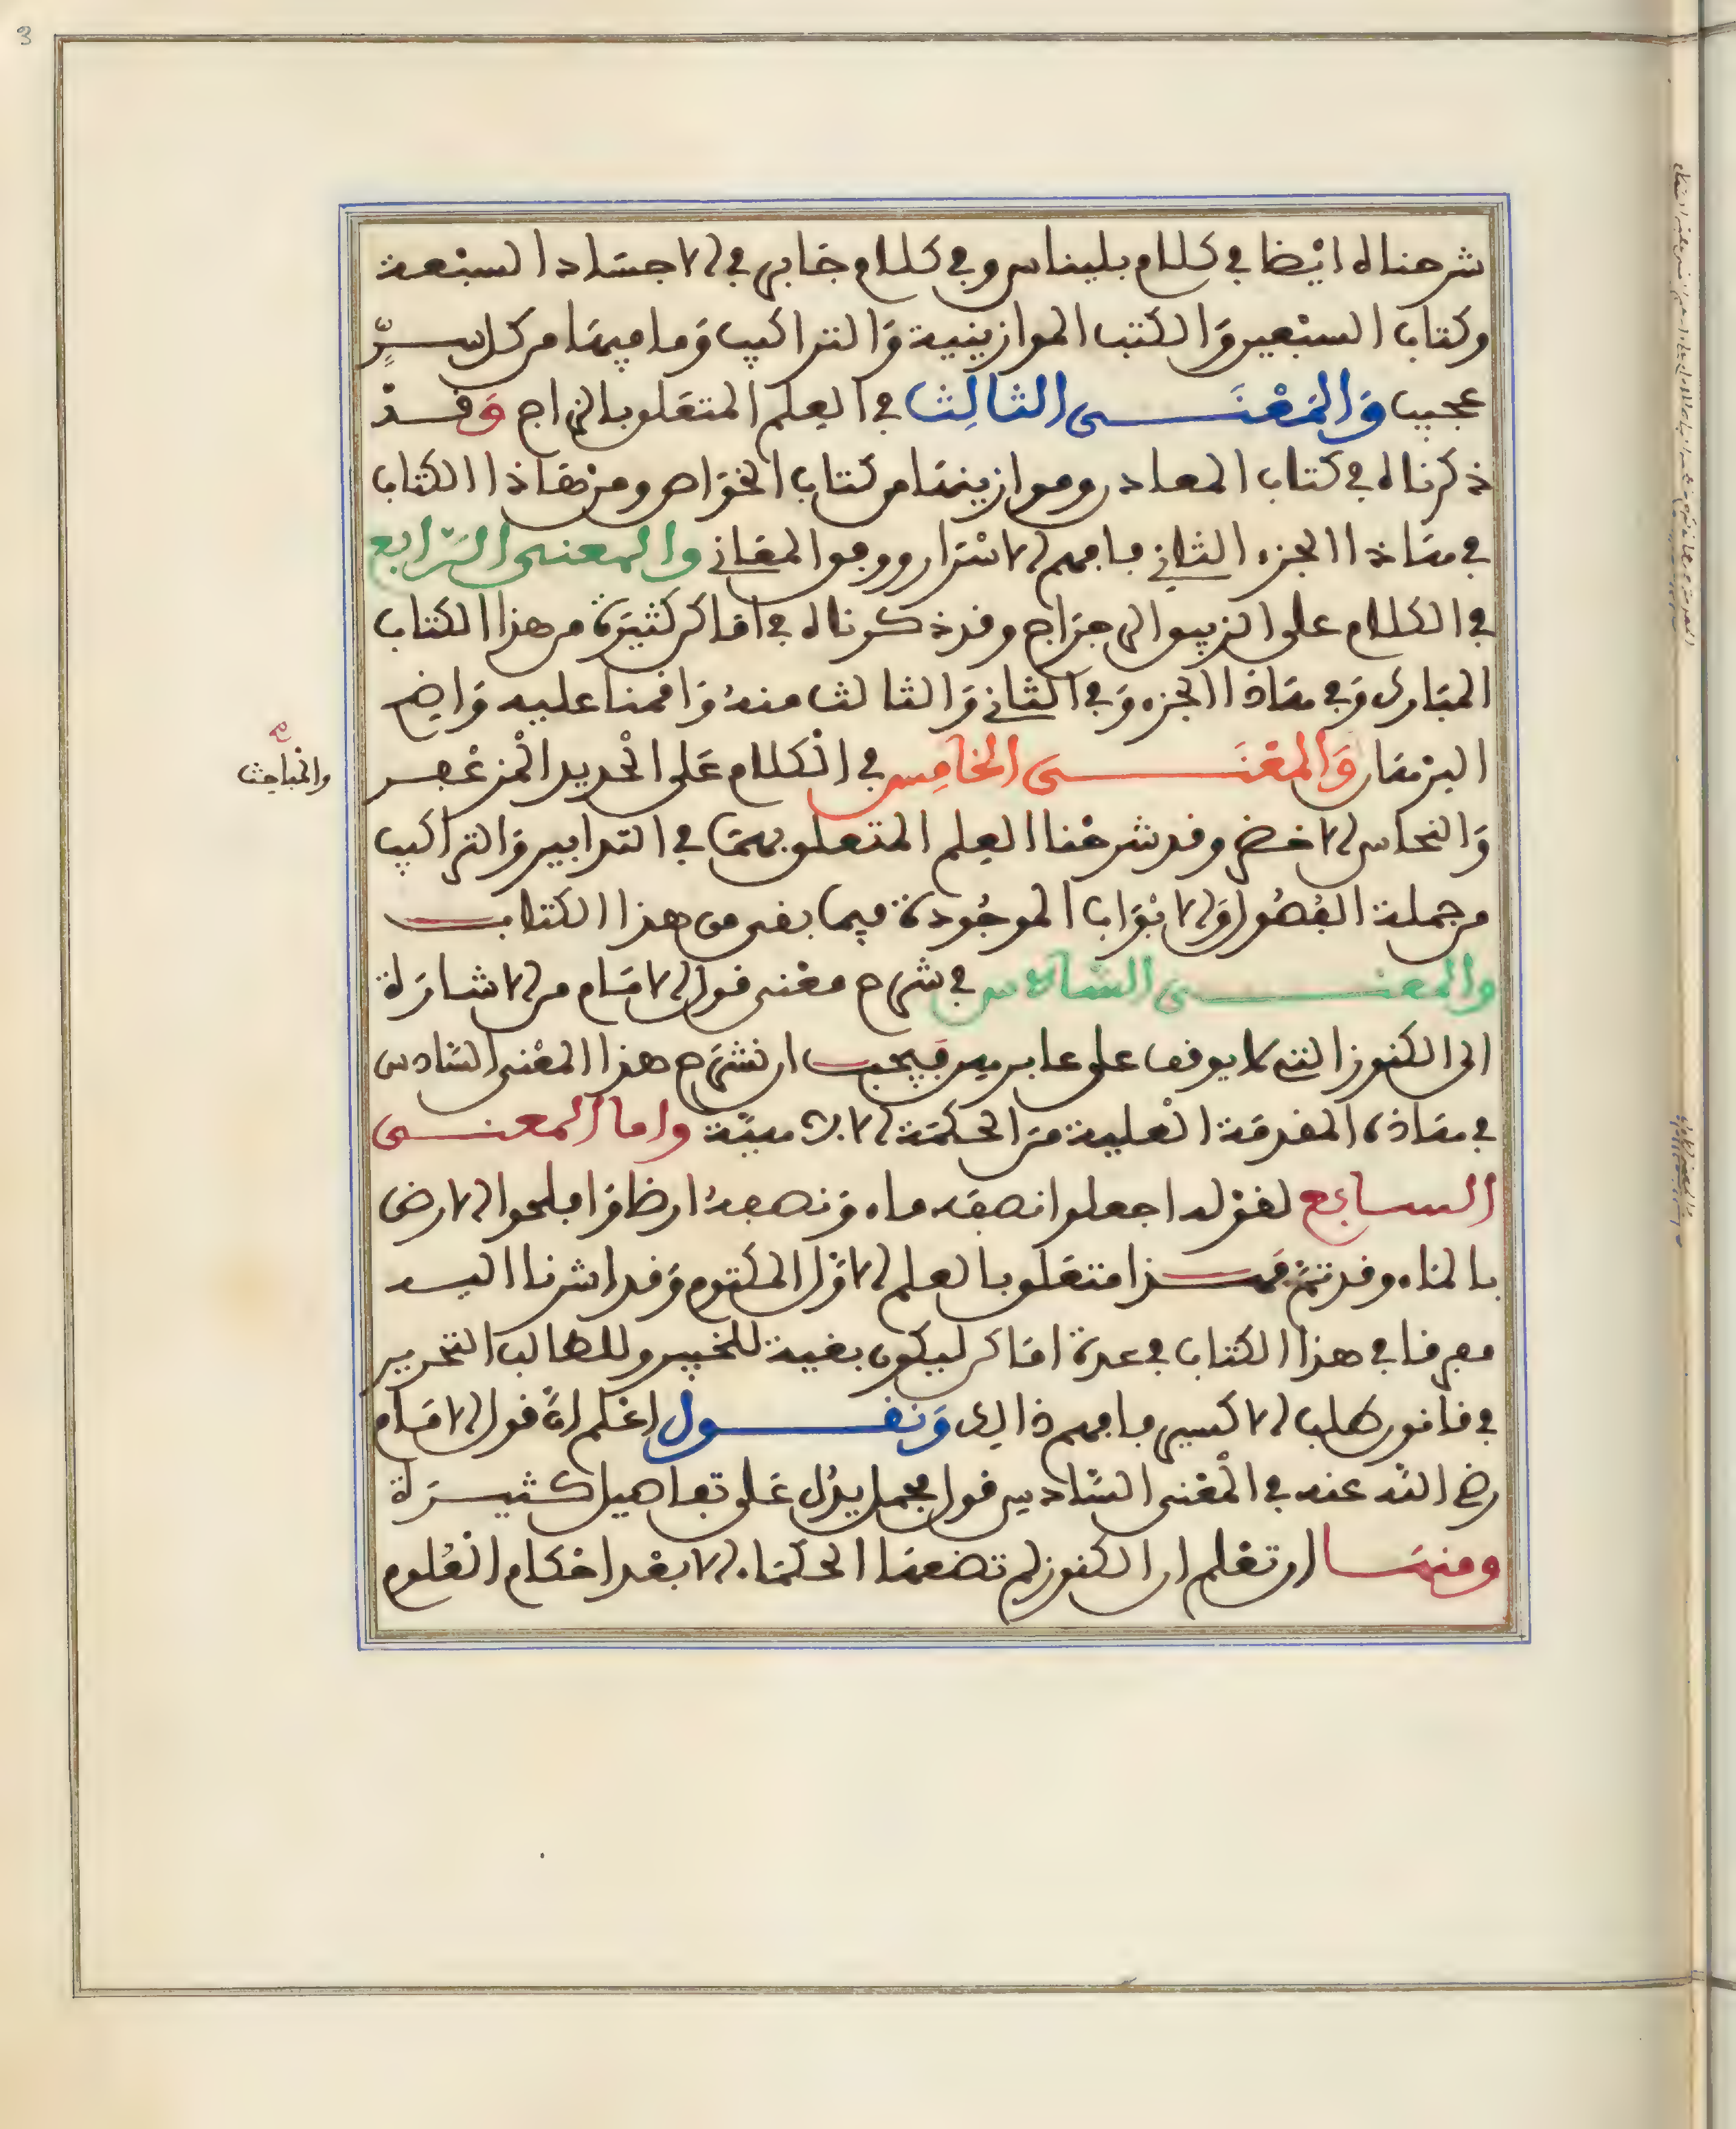 شرحناه ايْضا في كلام بليناس وفي كلام جَابر في الاجسَاد السبْعة
وكتاب السبْعين وَالكتب الموازينية وَالتراكيب وَما فيهَا من كل سرٍّ
عجيب وَالمَعْنَى الثالِث في العِلم المتعَلق بالزاج وَقدْ
ذكرناه في كتاب المعادن وموازينهَا من كتاب الخوَاص ومن هَاذا الكتاب
في هَاذا الجزء الثاني فافهم الاسْرَار ورموز المعَاني والمعنى الرّابع
في الكلام على الزيبق الرجرَاج وقد ذكرناه في امَاكن كثيرَة من هذا الكتاب
المبَارك وَفي هَاذا الجزء وَفي الثاني وَالثالث منهُ وَاقمنا عليه وَاضح
البرْهَان وَالمعْنَى الخامِس في الْكلام عَلى الْحديد الْمزعْفر
وَالنحاس الاخضر وقد شرحْنا العِلم المتعلق بهمَا في التدابير وَالتراكيب
من جملة الفُصُول وَالابْوَاب الموجُودة فيما بقى من هذا الكتاب
والمعنى السَّادس في شرح معْنى قول الامَام من الاشارَة
الى الكنوز التي لا يوقف على عابر فيهن فيجب ان نشرَح هذا المعْنى السَّادس
في هَاذه المقدمَة الْعلية منَ الحكمَة الالاهيّة واما المعنى
السابع لقوْله اجعلوا نصفَه ماء وَنصفهُ ارضا وَافلحوا الارض
بالمَاء وقد تمّ هَذا متعَلق بالعلم الاوَّل المكتوم وَقد اشرنا اليه
مفرقا في هذا الكتاب في عدة امَاكن ليكون بغية للخبير وللطالب النحرير
في قانون طلب الاكسير فافهم ذالك وَنقول اعْلم انَّ قول الامَام
رضي الله عنه في الْمعْنى السَّادس قول مجمل يدُل عَلى تفاصيل كثيرَة
ومنهَا ان تعْلم ان الكنوز لم تضعهَا الحكمَاء الا بعْد احْكام الْعُلوم
والمباحث